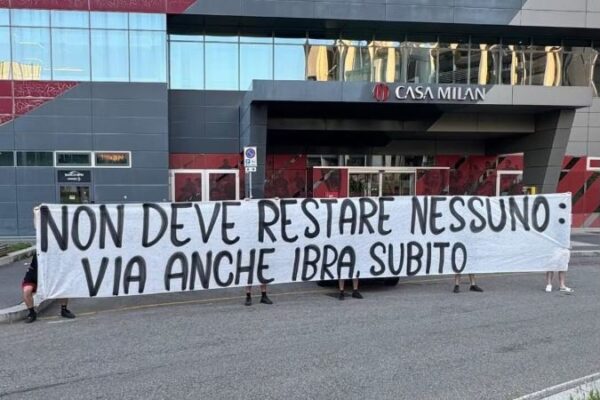 CASA MILAN
NON DEVE RESTARE NESSUNO:
VIA ANCHE IBRA, SUBITO